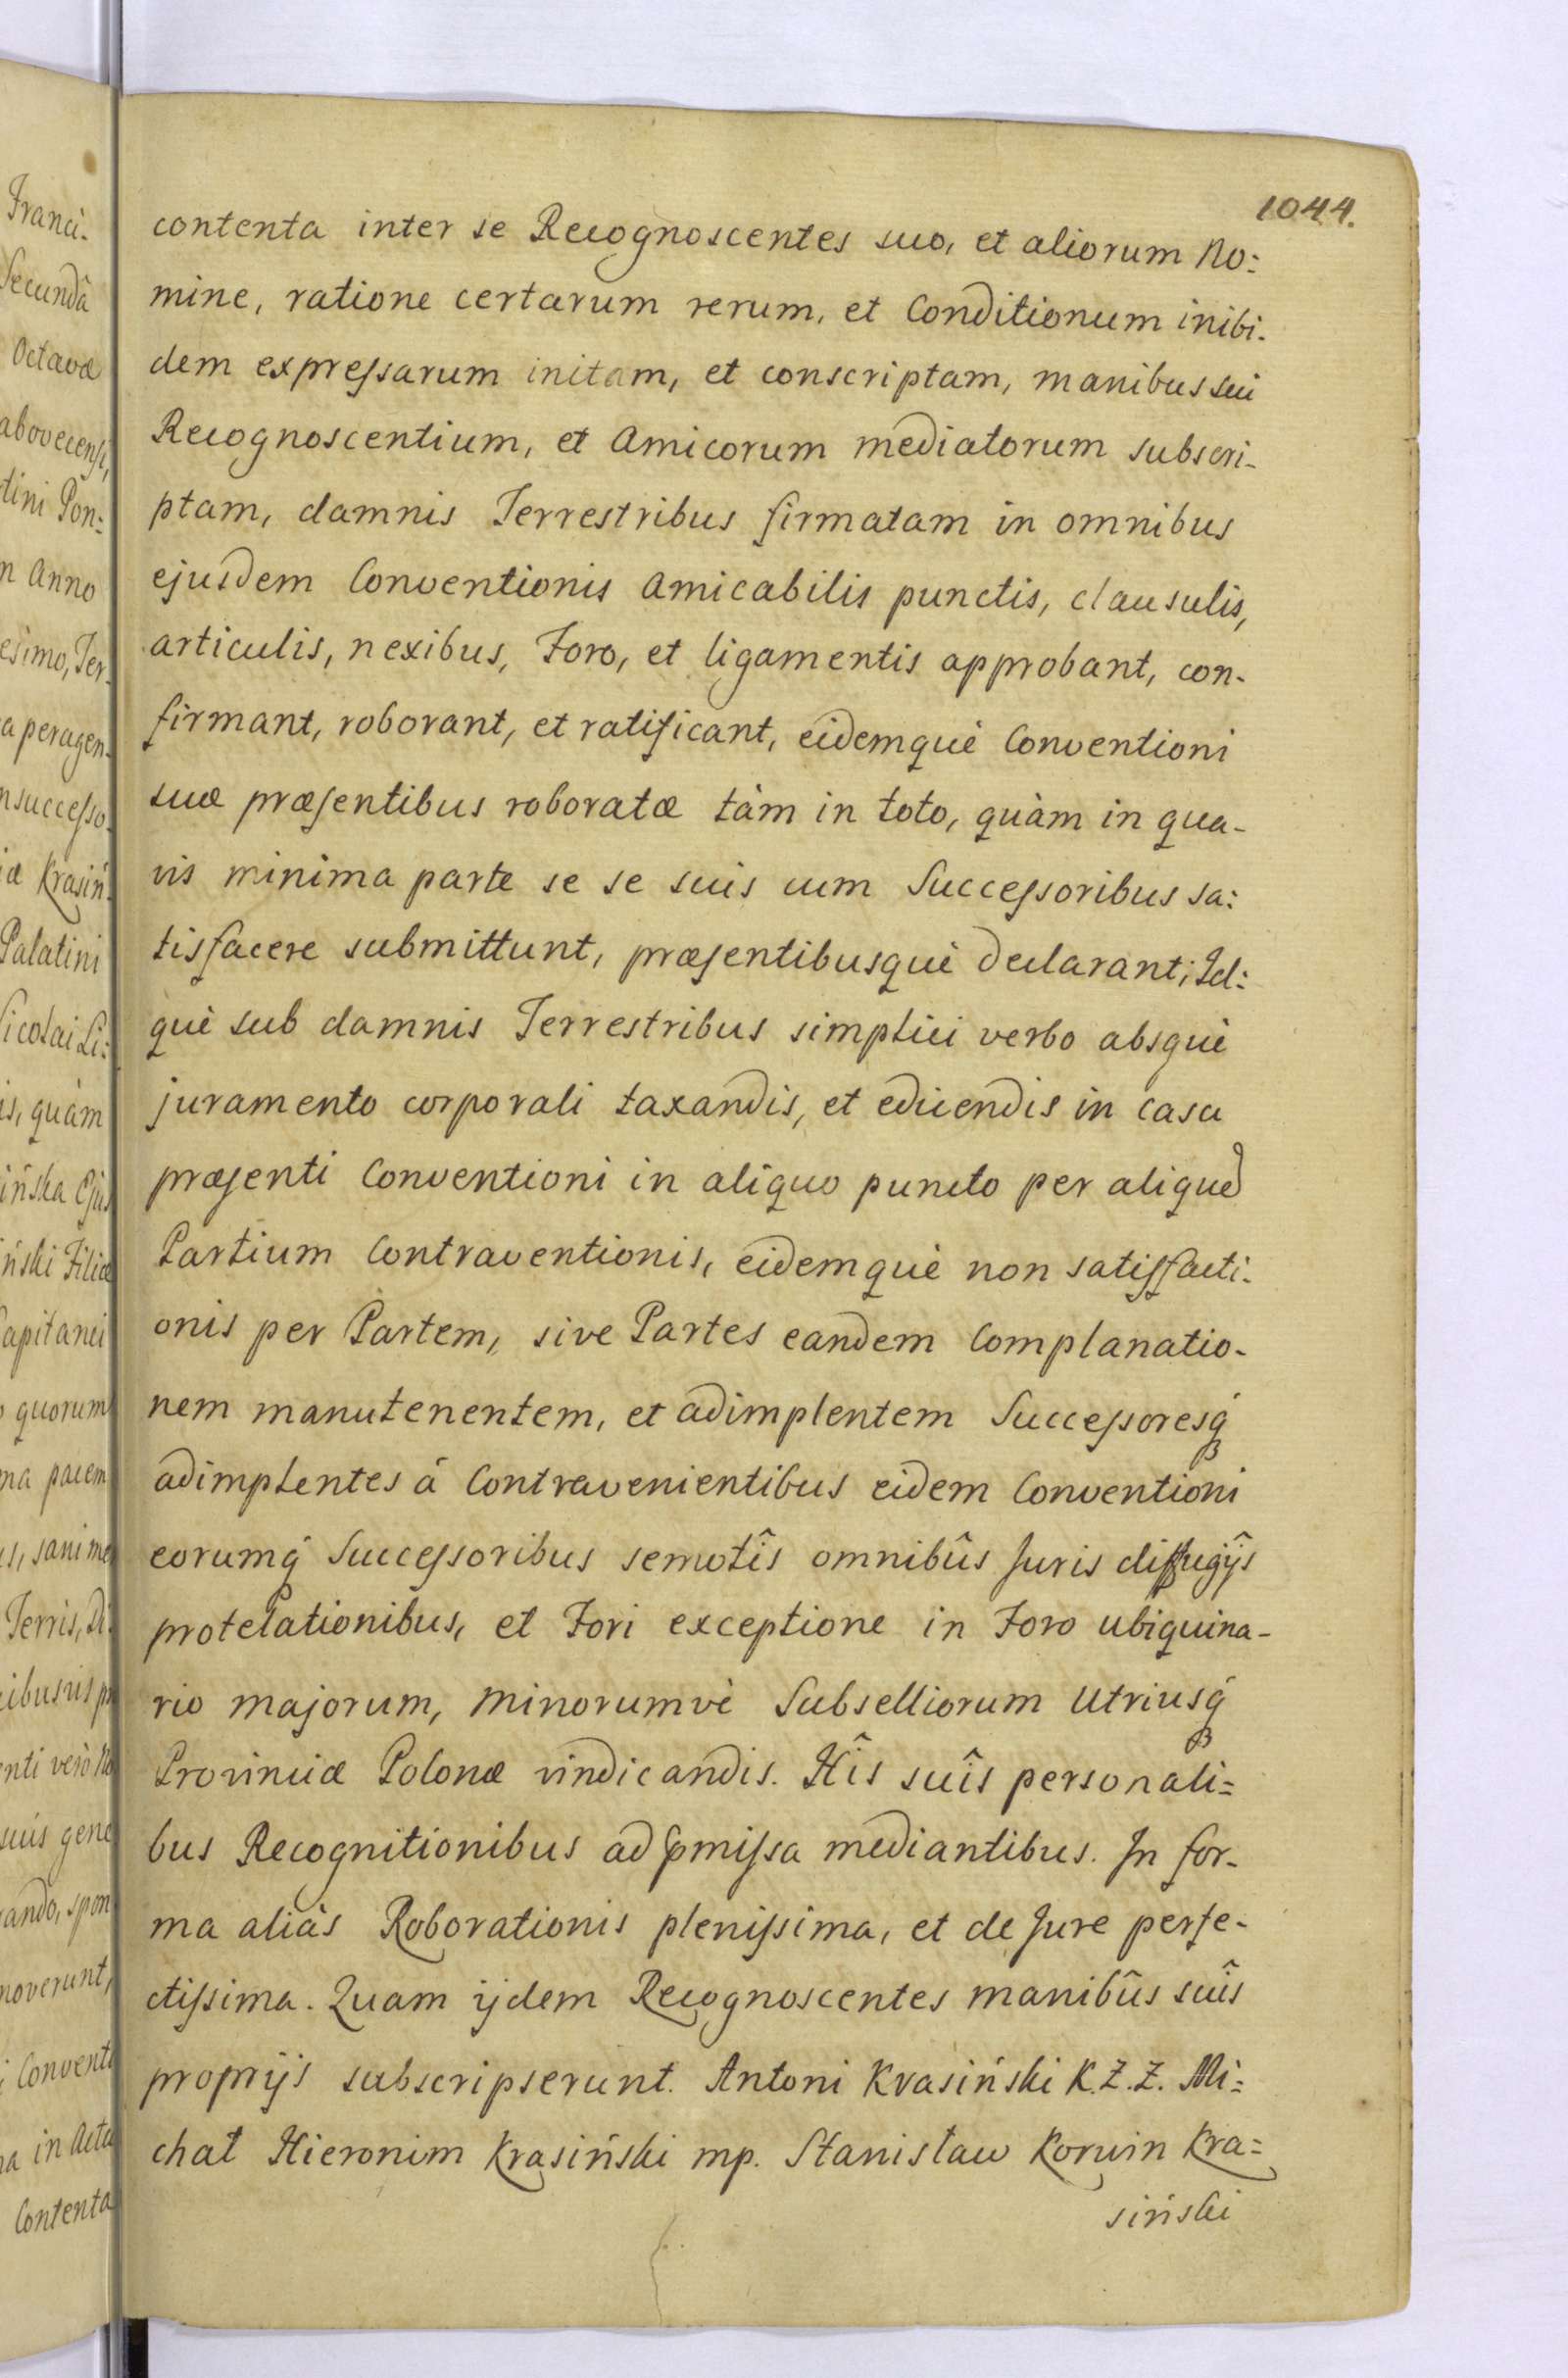 Franci-
Secundâ
Octavæ
abovecensi,
tini Pon:
n Anno
esimo, Ter-
a peragen-
nsuccesso-
iæ Krasiń-
Palatini
icolai Li:
is, quàm
ińska Ejus
iński Filiæ
apitanei
quorum
ma pacem
Terris, Di-
enti verò No
suis gene
ando, spon
noverunt,
Conventi
na in Acta
Contenta
1044.
contenta inter se Recognoscentes suo, et aliorum No:
mine, ratione certarum rerum, et Conditionum inibi-
dem expressarum initam, et conscriptam, manibus sui
Recognoscentium, et Amicorum mediatorum subscri-
ptam, damnis Terrestribus firmatam in omnibus
ejusdem Conventionis amicabilis punctis, clausulis,
articulis, nexibus, Foro, et ligamentis approbant, con-
firmant, roborant, et ratificant, eidemquè Conventioni
suæ præsentibus roboratæ tàm in toto, quàm in qua-
vis minima parte se se suis cum Successoribus sa:
tisfacere submittunt, præsentibusquè declarant; Id:
què sub damnis Terrestribus simplici verbo absquè
juramento corporali taxandis, et edicendis in casu
præsenti Conventioni in aliquo puncto per aliquẽ
Partium Contraventionis, eidemquè non satisfacti-
onis per Partem, sive Partes eandem Complanatio-
nem manutenentem, et adimplentem Successoresq́
adimplentes á Contravenientibus eidem Conventioni
eorumq́ Successoribus semotîs omnibûs Juris diffugijs
protelationibus, et Fori exceptione in Foro ubiquina-
rio majorum, minorumvè Subselliorum Utriusq́
Provinciæ Polonæ vindicandis. Hîs suîs personali=
bus Recognitionibus ad p̱missa mediantibus. In for-
ma aliàs Roborationis plenissima, et de Jure perfe-
ctissima. Quam ijdem Recognoscentes manibûs suîs
proprijs subscripserunt. Antoni Krasiński K.Z.Z. Mi=
chał Hieronim Krasiński mp. Stanisław Korwin Kra=
siński